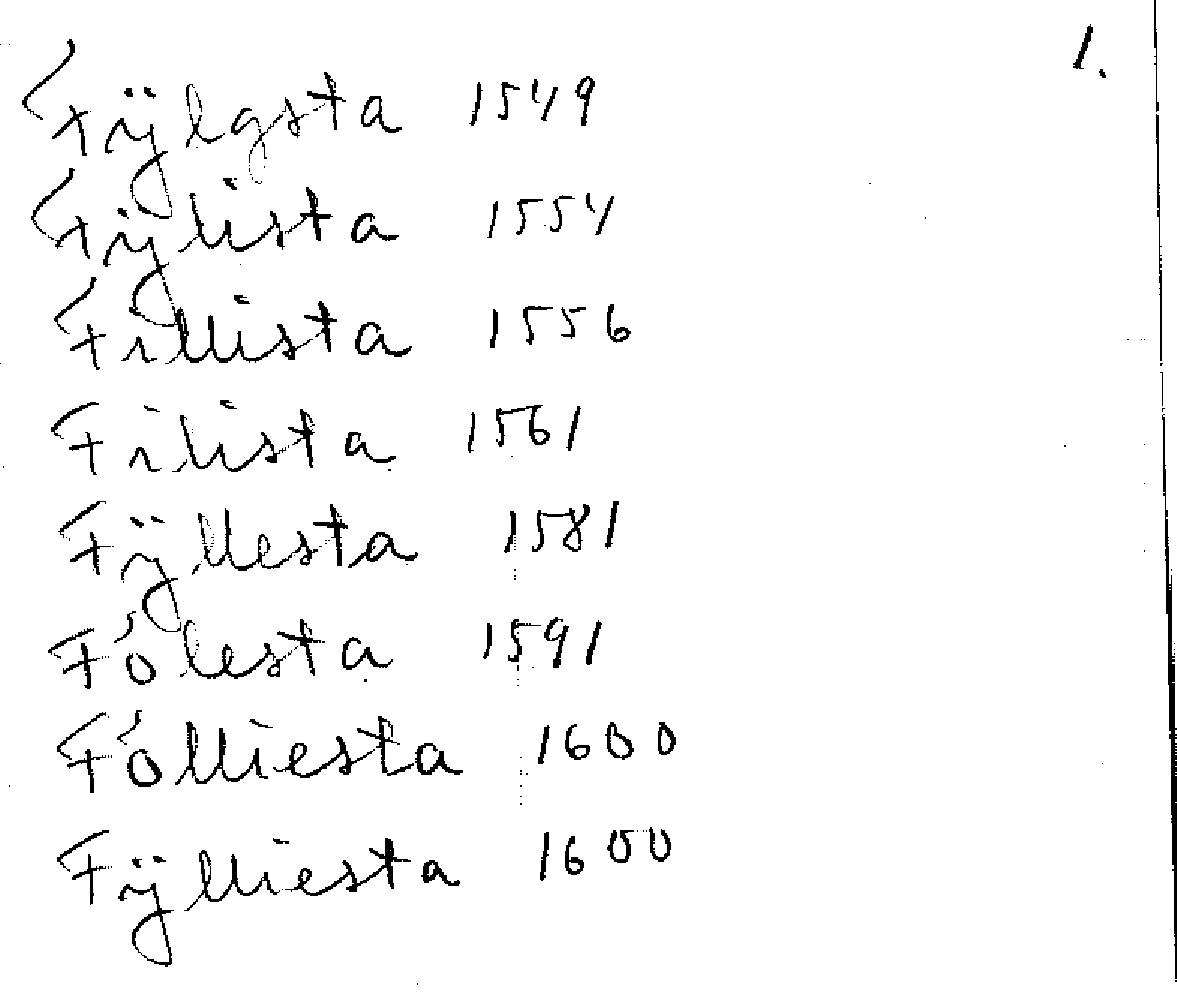 1.
Fÿlgsta 1549
Fÿlista 1554
Fillista 1556
Filista 1561
Fÿllesta 1581
Fólesta 1591
Fólliesta 1600
Fÿlliesta 1600